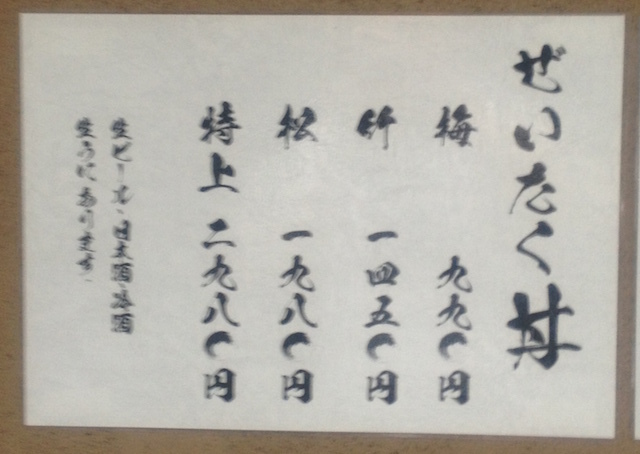 ぜいたく丼
梅 九九〇円
竹 一四五〇円
松 一九八〇円
特上 二九八〇円
生ビール、日本酒、冷酒
生うにあります。